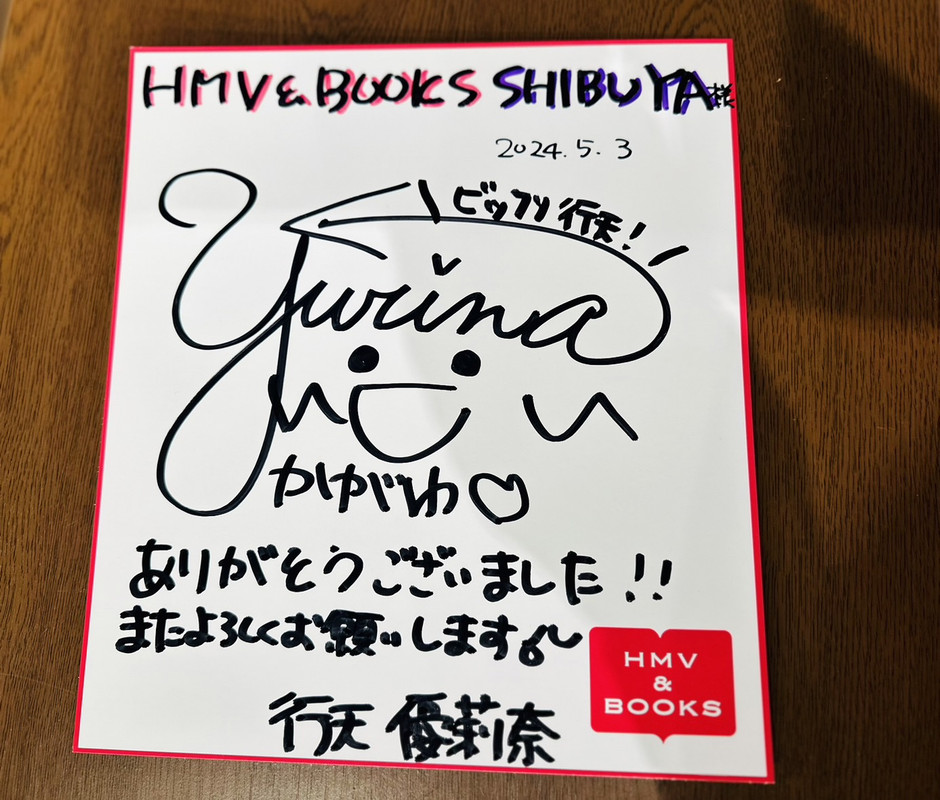 HMV & BOOKS SHIBUYA様
2024.5.3
ビックリ行天!
Yurina
かがわ♡
ありがとうございました!!
またよろしくお願いします
行天 優莉奈
HMV
&
BOOKS